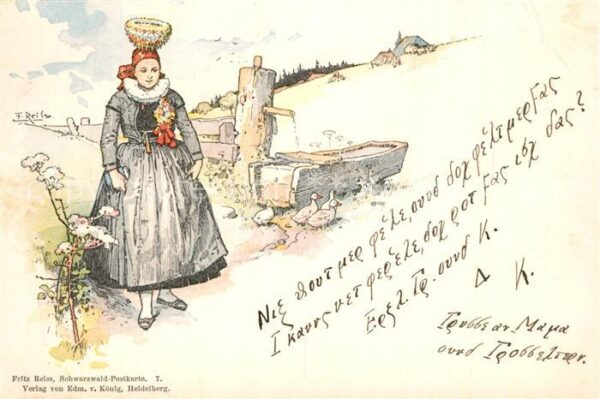 F. Reiss
Νιξ θουτ μερ φεˈλε, ουνδ δοχ φελτ μερ Fας
Ι καννς νετ φερζˈελε, δοχ ροτ Fας ισχ δας?
Ερζλ. Γρ. ουνδ Κ.
Δ Κ.
Γρυσσε αν Μαμα
ουνδ Γροσσελτερν.
Fritz Reiss, Schwarzwald-Postkarte. 7.
Verlag von Edm. v. König, Heidelberg.